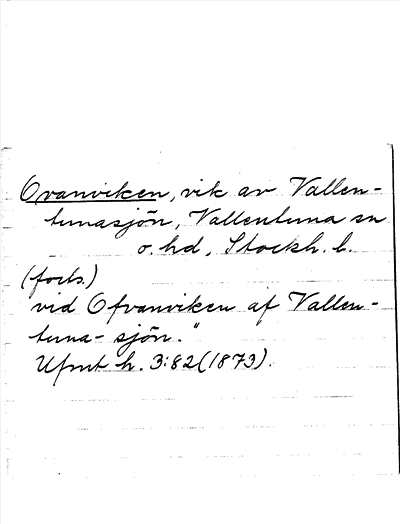 Ovanviken, vik av Vallen-
tunasjön, Vallentuna sn
o. hd, Stockh. l.
(forts.)
vid Ofvanviken af Vallen-
tuna-sjön."
Ufmt h. 3:82(1873).